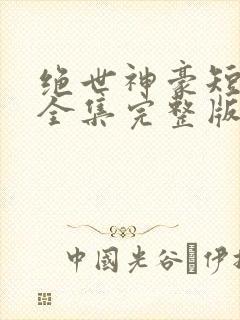 绝世神豪短
全集完整版
中國光谷 伊